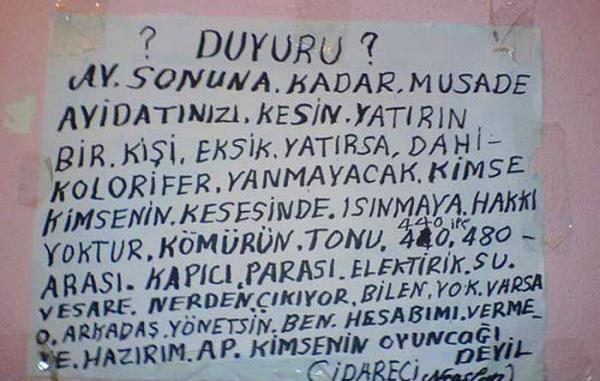 ? DUYURU ?
AY. SONUNA. KADAR. MUSADE
AYIDATINIZI. KESİN. YATIRIN
BİR. KİŞİ. EKSİK. YATIRSA, DAHİ-
KOLORİFER. YANMAYACAK. KİMSE
KİMSENİN. KESEŞİNDE. ISINMAYA. HAKKI
440 İPE
YOKTUR. KÖMÜRÜN. TONU. 440. 480 -
ARASI. KAPICI. PARASI. ELEKTİRİK. SU.
VESARE. NERDEN ÇIKIYOR. BİLEN. YOK. VARSA
O. ARKADAŞ. YÖNETSİN. BEN. HESABIMI. VERME-
YE. HAZIRIM. AP. KİMSENİN OYUNCAĞI
DEYİL
(İDARECİ